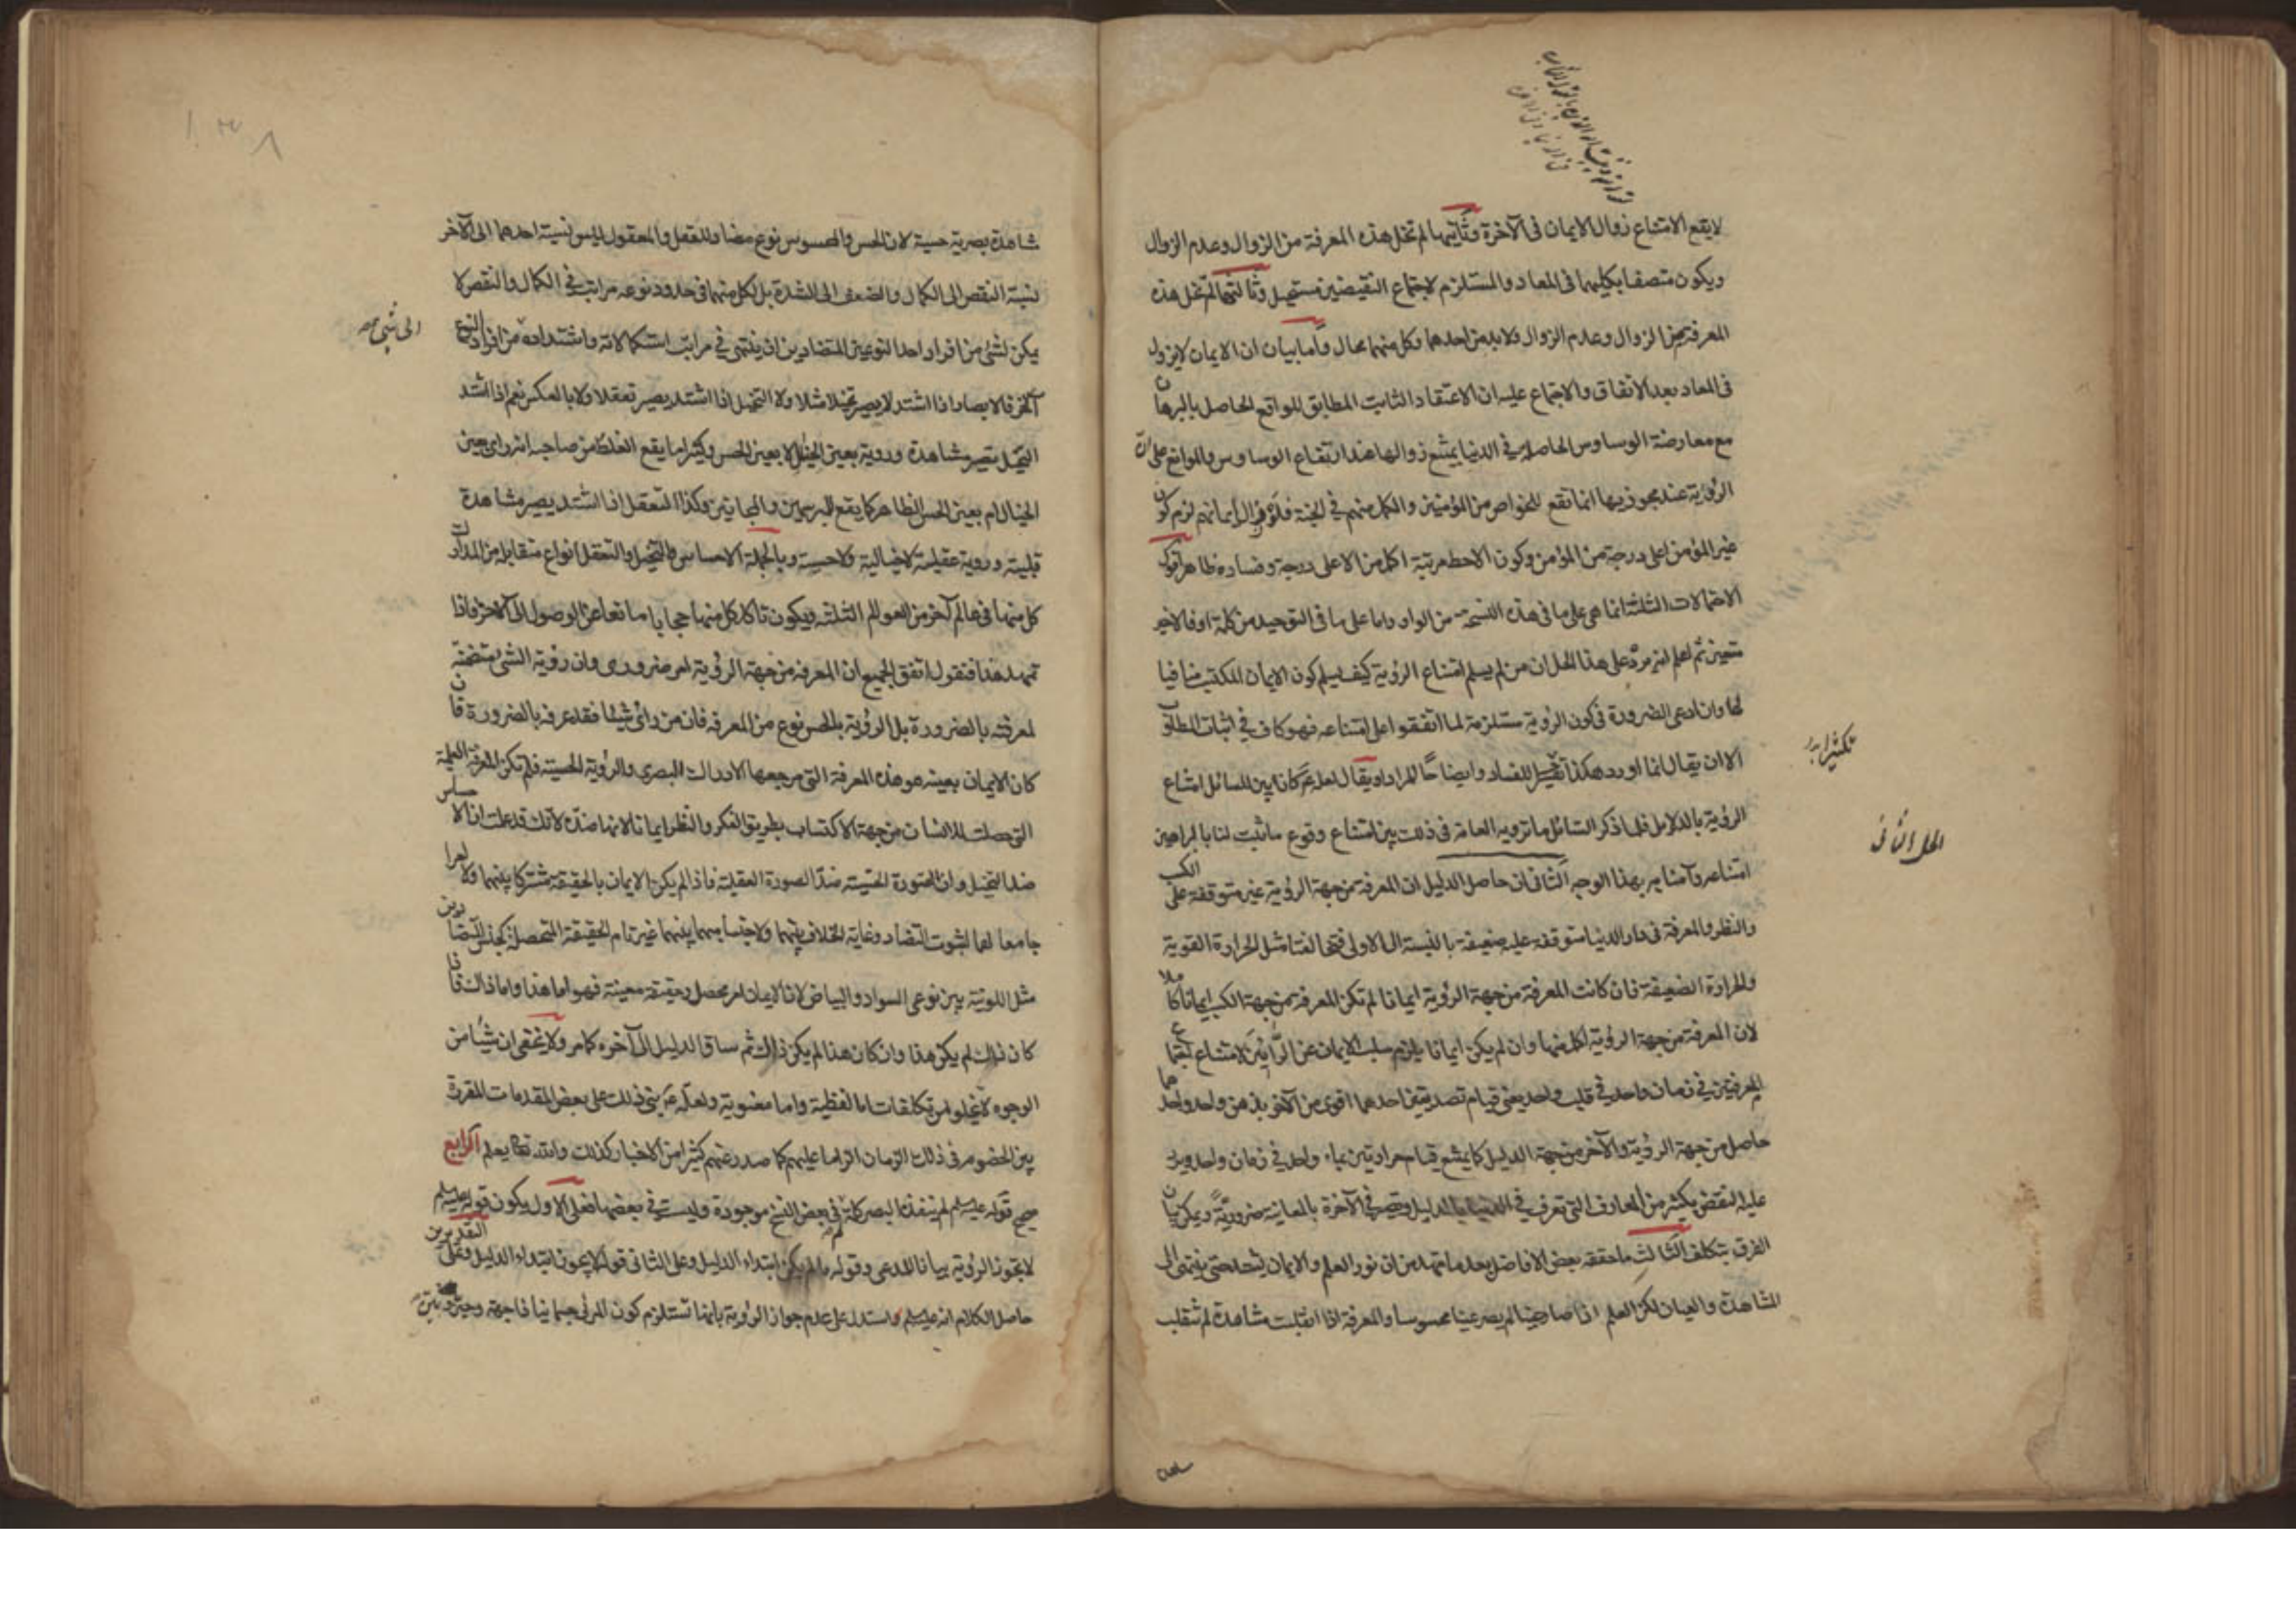 لا يقع الامتناع زوال الايمان فى الآخرة وثانيها لم تخل هذه المعرفة من الزوال وعدم الزوال
ويكون متصفا بكليهما فى المعاد والمستلزم لاجتماع النقيضين مستحيل وثالثها لم تخل هذه
المعرفة من الزوال وعدم الزوال ولا بد من احدهما وكل منهما محال وأما بيان ان الايمان لا يزول
فى المعاد بعد الاتفاق والاجتماع عليه ان الاعتقاد الثابت المطابق للواقع الحاصل بالبرهان
مع معارضة الوساوس الحاصلة فى الدنيا يمتنع زوالها عند ارتفاع الوساوس والموانع على ان
الرؤية عند مجوزيها انما تقع للخواص من المؤمنين والكمل منهم فى الجنة فلو زال ايمانهم لزم كون
غير المؤمن اعلى درجة من المؤمن وكون الاحط مرتبة اكمل من الاعلى درجة وفساده ظاهر
الاحتمالات الثلثة انما هى على ما فى هذه النسخة من الواو واما على ما فى التوحيد من كلمة او فالاخير
متعين ثم اعلم انه يرد على هذا الحل ان من لم يسلم امتناع الرؤية كيف يسلم كون الايمان المكتسب منافيا
لها وان ادعى الضرورة فى كون الرؤية مستلزمة لما اتفقوا على امتناعه فهو كاف فى اثبات المطلوب
الا ان يقال انما اورد هكذا للفساد وايضاحا للمراد او يقال لعله كان بين للسائل امتناع
الرؤية بالدلايل فلما ذكر السائل ما ترويه العامة فى ذلك بين امتناع وقوع ما ثبت لنا بالبراهين
امتناعه وآمنا به بهذا الوجه الثانى ان حاصل الدليل ان المعرفة من جهة الرؤية غير متوقفة على الكسب
والنظر والمعرفة فى دار الدنيا متوقفة عليه ضعيفة بالنسبة الى الاولى فتخالفتا مثل الحرارة القوية
والحرارة الضعيفة فان كانت المعرفة من جهة الرؤية ايمانا لم تكن المعرفة من جهة الكسب ايمانا كاملا
لان المعرفة من جهة الرؤية اكمل منها وان لم يكن ايمانا يلزم سلب الايمان عن الرائين لامتناع اجتماع
المعرفتين فى زمان واحد فى قلب واحد يعنى قيام تصديقين احدهما اقوى من الآخر بذهن واحد واحدهما
حاصل من جهة الرؤية والآخر من جهة الدليل كما يمتنع قيام حرارتين بماء واحد فى زمان واحد ويرد
عليه النقض بكثير من المعارف التى تعرف فى الدنيا بالدليل وتصير فى الآخرة بالمعاينة ضرورية ويمكن بيان
الفرق بتكلف الثالث ما حققه بعض الافاضل بعد ما تمهد من ان نور العلم والايمان يشتد حتى ينتهى الى
المشاهدة والعيان لكن العلم اذا صار عينا لم يصر عينا محسوسا والمعرفة اذا انقلبت مشاهدة لم تنقلب
الحل الثانى
شاهدة بصرية حسية لان الحس والمحسوس نوع مضاد للعقل والمعقول ليس نسبة احدهما الى الآخر
نسبة النقص الى الكمال والضعف الى الشدة بل لكل منهما فى حدود نوعه مراتب فى الكمال والنقص لا
يمكن لشئ من افراد احد النوعين المتضادين ان ينتهى فى مراتب استكمالاته واشتداده من افراد النوع
الى شئ صح
الآخر فالابصار اذا اشتد لا يصير تخيلا مثلا ولا التخيل اذا اشتد يصير تعقلا ولا بالعكس نعم اذا اشتد
التخيل تصير مشاهدة ورؤية بعين الخيال لا بعين الحس وكثيرا ما يقع الغلط من صاحبه انه راى بعين
الخيال ام بعين الحس الظاهر كما يقع للمبرسمين والمجانين وكذا التعقل اذا اشتد يصير مشاهدة
قلبية ورؤية عقلية لا خيالية ولا حسية وبالجملة الاحساس والتخيل والتعقل انواع متقابلة من المدارك
كل منها فى عالم آخر من العوالم الثلثة ويكون تأكد كل منها حجابا مانعا عن الوصول الى الآخر فاذا
تمهد هذا فنقول اتفق الجميع ان المعرفة من جهة الرؤية امر ضرورى وان رؤية الشئ متضمنة
لمعرفته بالضرورة بل الرؤية بالحس نوع من المعرفة فان من رأى شيئا فقد عرفه بالضرورة فان
كان الايمان بعينه هو هذه المعرفة التى مرجعها الادراك البصرى والرؤية الحسية فلم تكن المعرفة العلمية
التى حصلت للانسان من جهة الاكتساب بطريق الفكر والنظر ايمانا لانها ضده لانك قد علمت ان الاحساس
ضد التخيل وان الصورة الحسية ضد الصورة العقلية فاذا لم يكن الايمان بالحقيقة مشتركا بينهما ولا امرا
جامعا لهما لثبوت التضاد وغاية الخلاف بينهما ولا جنسا مبهما بينهما غير تام الحقيقة المتحصلة كجنس المتضادين
مثل اللونية بين نوعى السواد والبياض لان الايمان امر محصل وحقيقة معينة فهو اما هذا واما ذاك فاذا
كان ذاك لم يكن هذا وان كان هذا لم يكن ذاك ثم ساق الدليل الى آخره كما مر ولا يخفى ان شيئا من
الوجوه لا يخلو من تكلفات اما لفظية واما معنوية ولعله ع بنى ذلك على بعض المقدمات المقررة
بين الخصوم فى ذلك الزمان الزاما عليهم كما صدر عنهم كثير من الاخبار كذلك والله تعالى يعلم الرابع
صح قوله عليه السلم لم ينفذه البصر كان فى بعض النسخ موجودة وليست فى بعضها فعلى الاول يكون قوله عليه السلم
لا يجوز الرؤية بيانا للمدعى وقوله ما لم يكن ابتداء الدليل وعلى الثانى قوله لا يجوز ابتداء الدليل وعلى التقديرين
حاصل الكلام انه عليه السلم استدل على عدم جواز الرؤية بانها تستلزم كون المرئى جسمانيا ذا جهة وحيز